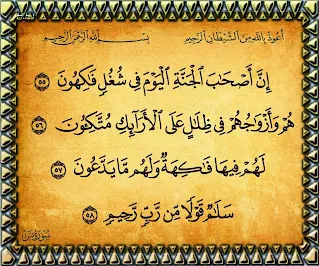 أعوذ بالله من الشيطان الرجيم بسم الله الرحمن الرحيم
إِنَّ أَصْحَٰبَ ٱلْجَنَّةِ ٱلْيَوْمَ فِى شُغُلٍ فَٰكِهُونَ ٥٥
هُمْ وَأَزْوَٰجُهُمْ فِى ظِلَٰلٍ عَلَى ٱلْأَرَآئِكِ مُتَّكِـُٔونَ ٥٦
لَهُمْ فِيهَا فَٰكِهَةٌ وَلَهُم مَّا يَدَّعُونَ ٥٧
سَلَٰمٌ قَوْلًا مِّن رَّبٍّ رَّحِيمٍ ٥٨
سورة يس